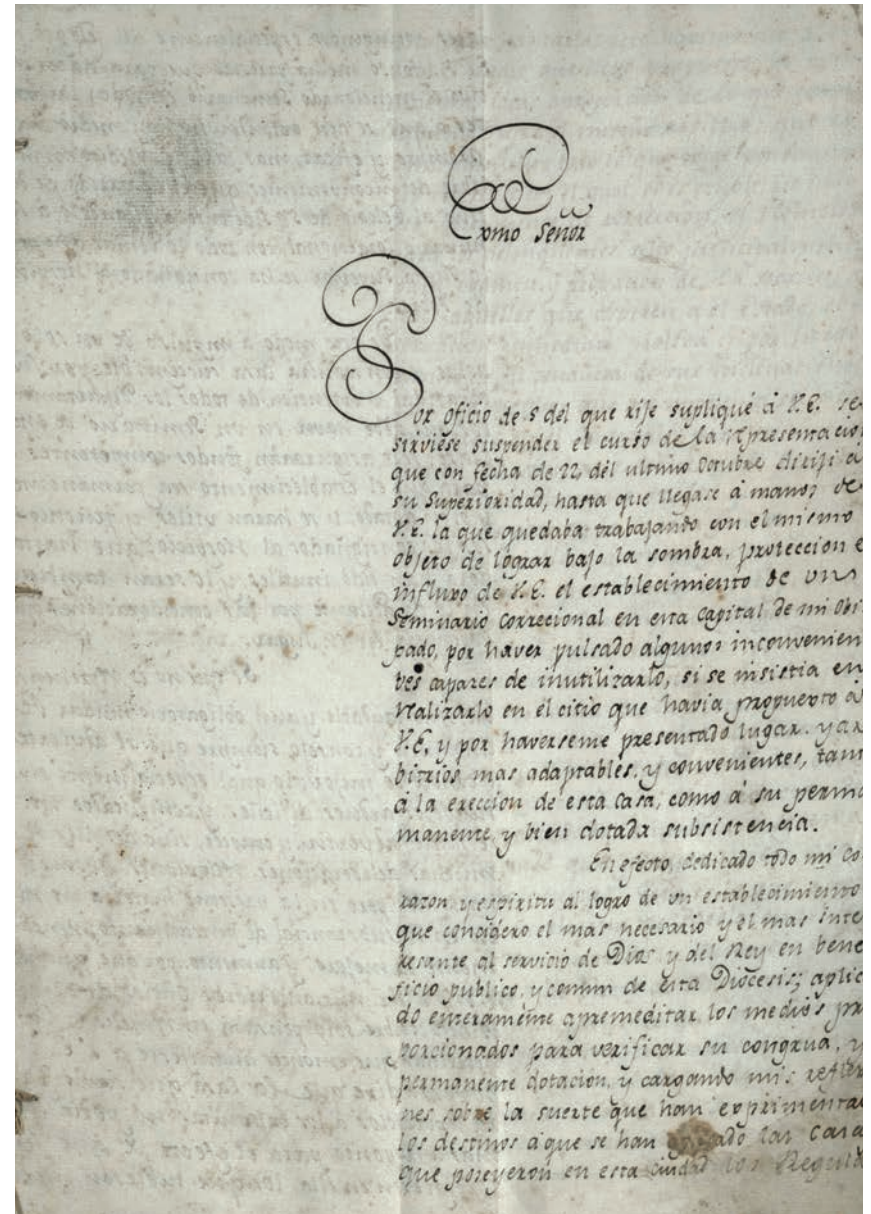 Exmo Señor
Por oficio de 5 del que rije supliqué á V.E. se
sirviese suspender el curso de la representacio
que con fecha de 22, del ultimo Octubre dirijí á
su Superioridad, hasta que llegase á manos de
V.E. la que quedaba trabajando con el mismo
objeto de lograr bajo la sombra, proteccion é
influxo de V.E. el establecimiento de un
Seminario Correcional en esta Capital de mi Obis
pado, por haver pulsado algunos inconvenien
tes capares de inutilizarlo, si se insistia en
realizarlo en el citio que havia propuesto á
V.E, y por haverseme presentado lugar. y ar
bitrios mas adaptables. y convenientes, tam
á la ereccion de esta Casa, como á su perma
manente, y bien dotada subsistencia.
En efecto, dedicado todo mi Co
razon y espiritu al logro de un establecimiento
que concidero el mas necesario y el mas inte
resante al servicio de Dios y del Rey en bene
ficio publico, y comun de esta Diocesis; aplic
do enteramente apremeditar los medios pro
porcionados para verificar su congrua, y
permanente dotacion, y cargando mis reflex
nes sobre la suerte que han exprimenta
los destinos á que se han las Casa
que poseyeron en esta ciudad los Regula